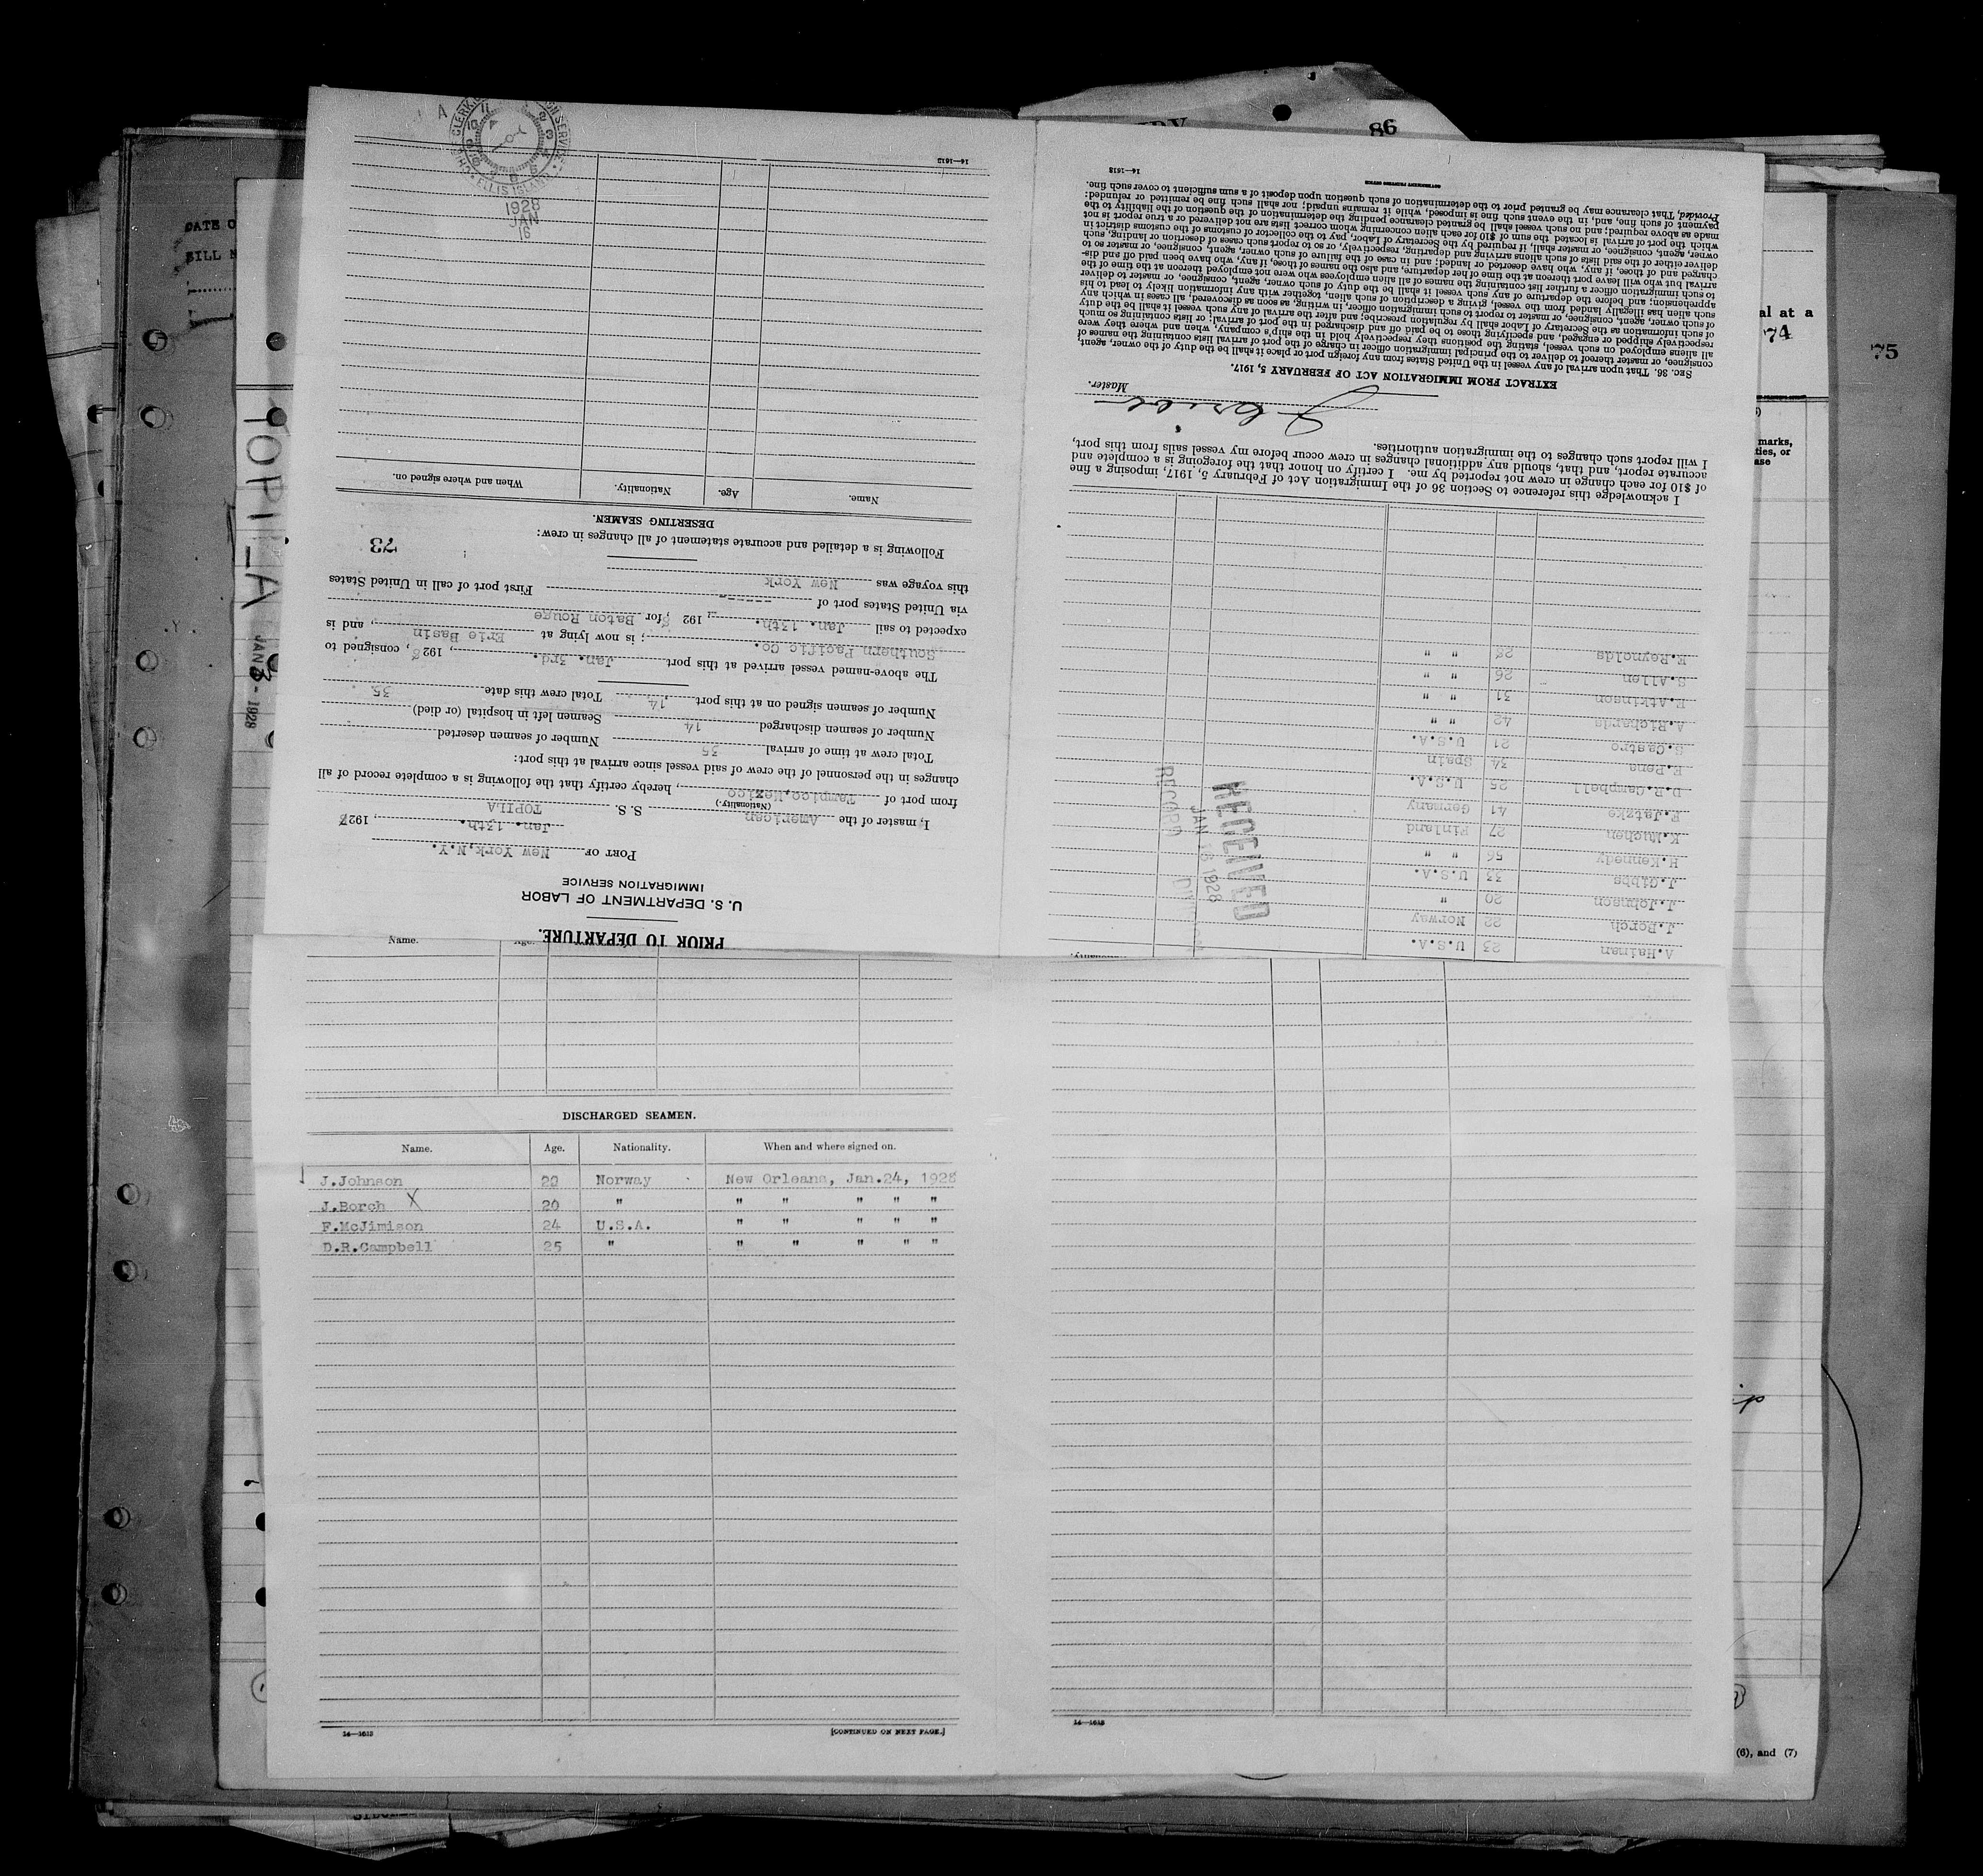 PRIOR TO DEPARTURE.
U. S. DEPARTMENT OF LABOR
IMMIGRATION SERVICE
PORT OF New York, N.Y.
Jan. 13th. , 1928
I, master of the American S. S. TOPILA
(Nationality.)
from port of Tampico, Mexico , hereby certify that the following is a complete record of all
changes in the personnel of the crew of said vessel since arrival at this port:
Total crew at time of arrival 35 Number of seamen deserted
Number of seamen discharged 14 Seamen left in hospital (or died)
Number of seamen signed on at this port 14 Total crew this date 35
The above-named vessel arrived at this port Jan. 3rd. , 1928 , consigned to
Southern Pacific Co. ; is now lying at Erie Basin , and is
expected to sail Jan. 13th. , 1928 , for Baton Rouge
via United States port of ------ First port of call in United States
this voyage was New York
73
Following is a detailed and accurate statement of all changes in crew:
DESERTING SEAMEN.
Name. Age. Nationality. When and where signed on.
14—1613
ELLIS ISLAND
1928
JAN
16
A.Hainan 23 U.S.A.
J.Borch 22 Norway
J.Johnson 20 "
J.Gibbs 33 U.S.A.
H.Kennedy 56 " "
K.Muchen 27 Finland
F.Jatzke 41 Germany
D.R.Campbell 25 U.S.A.
F.Pena 34 Spain
S.Castro 21 U.S.A.
A.Richards 42 " "
F.Atkinson 31 " "
S.Allen 26 " "
E.Reynolds 28 " "
RECEIVED
JAN 18 1928
RECORD DIVISION
I acknowledge this reference to Section 36 of the Immigration Act of February 5, 1917, imposing a fine
of $10 for each change in crew not reported by me. I certify on honor that the foregoing is a complete and
accurate report, and that, should any additional changes in crew occur before my vessel sails from this port,
I will report such changes to the immigration authorities.
Master.
EXTRACT FROM IMMIGRATION ACT OF FEBRUARY 5, 1917.
SEC. 36. That upon arrival of any vessel in the United States from any foreign port or place it shall be the duty of the owner, agent,
consignee, or master thereof to deliver to the principal immigration officer in charge of the port of arrival lists containing the names of
all aliens employed on such vessel, stating the positions they respectively hold in the ship's company, when and where they were
respectively shipped or engaged, and specifying those to be paid off and discharged in the port of arrival; or lists containing so much
of such information as the Secretary of Labor shall by regulation prescribe; and after the arrival of any such vessel it shall be the duty
of such owner, agent, consignee, or master to report to such immigration officer, in writing, as soon as discovered, all cases in which any
such alien has illegally landed from the vessel, giving a description of such alien, together with any information likely to lead to his
apprehension; and before the departure of any such vessel it shall be the duty of such owner, agent, consignee, or master to deliver
to such immigration officer a further list containing the names of all alien employees who were not employed thereon at the time of the
arrival but who will leave port thereon at the time of her departure, and also the names of those, if any, who have been paid off and dis-
charged and of those, if any, who have deserted or landed; and in case of the failure of such owner, agent, consignee, or master so to
deliver either of the said lists of such aliens arriving and departing, respectively, or so to report such cases of desertion or landing, such
owner, agent, consignee, or master shall, if required by the Secretary of Labor, pay to the collector of customs of the customs district in
which the port of arrival is located the sum of $10 for each alien concerning whom correct lists are not delivered or a true report is not
made as above required; and no such vessel shall be granted clearance pending the determination of the question of the liability to the
payment of such fine, and, in the event such fine is imposed, while it remains unpaid; nor shall such fine be remitted or refunded:
Provided, That clearance may be granted prior to the determination of such question upon deposit of a sum sufficient to cover such fine.
GOVERNMENT PRINTING OFFICE
14—1613
Name. Age.
DISCHARGED SEAMEN.
Name. Age. Nationality. When and where signed on.
J.Johnson 22 Norway New Orleans, Jan.24, 1928
J.Borch X 20 " " " " " "
F.McJimison 24 U.S.A. " " " " "
D.R.Campbell 25 " " " " " "
14—1613 [CONTINUED ON NEXT PAGE.]
14—1613
TOPILA
JAN 3 - 1928
DATE O
BILL N
86
al at a
74
75
marks,
ties, or
ase
(6), and (7)